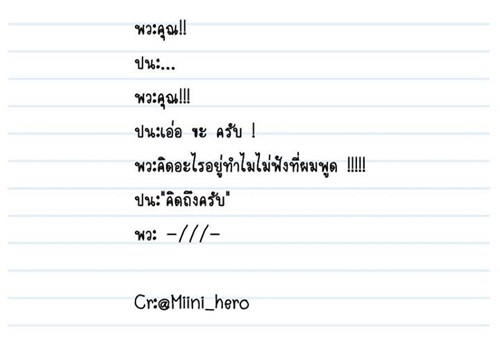 พว:คุณ!!
ปน:...
พว:คุณ!!!
ปน:เอ่อ ขะ ครับ !
พว:คิดอะไรอยู่ทำไมไม่ฟังที่ผมพูด !!!!!
ปน:"คิดถึงครับ"
พว: -///-
Cr:@Miini_hero